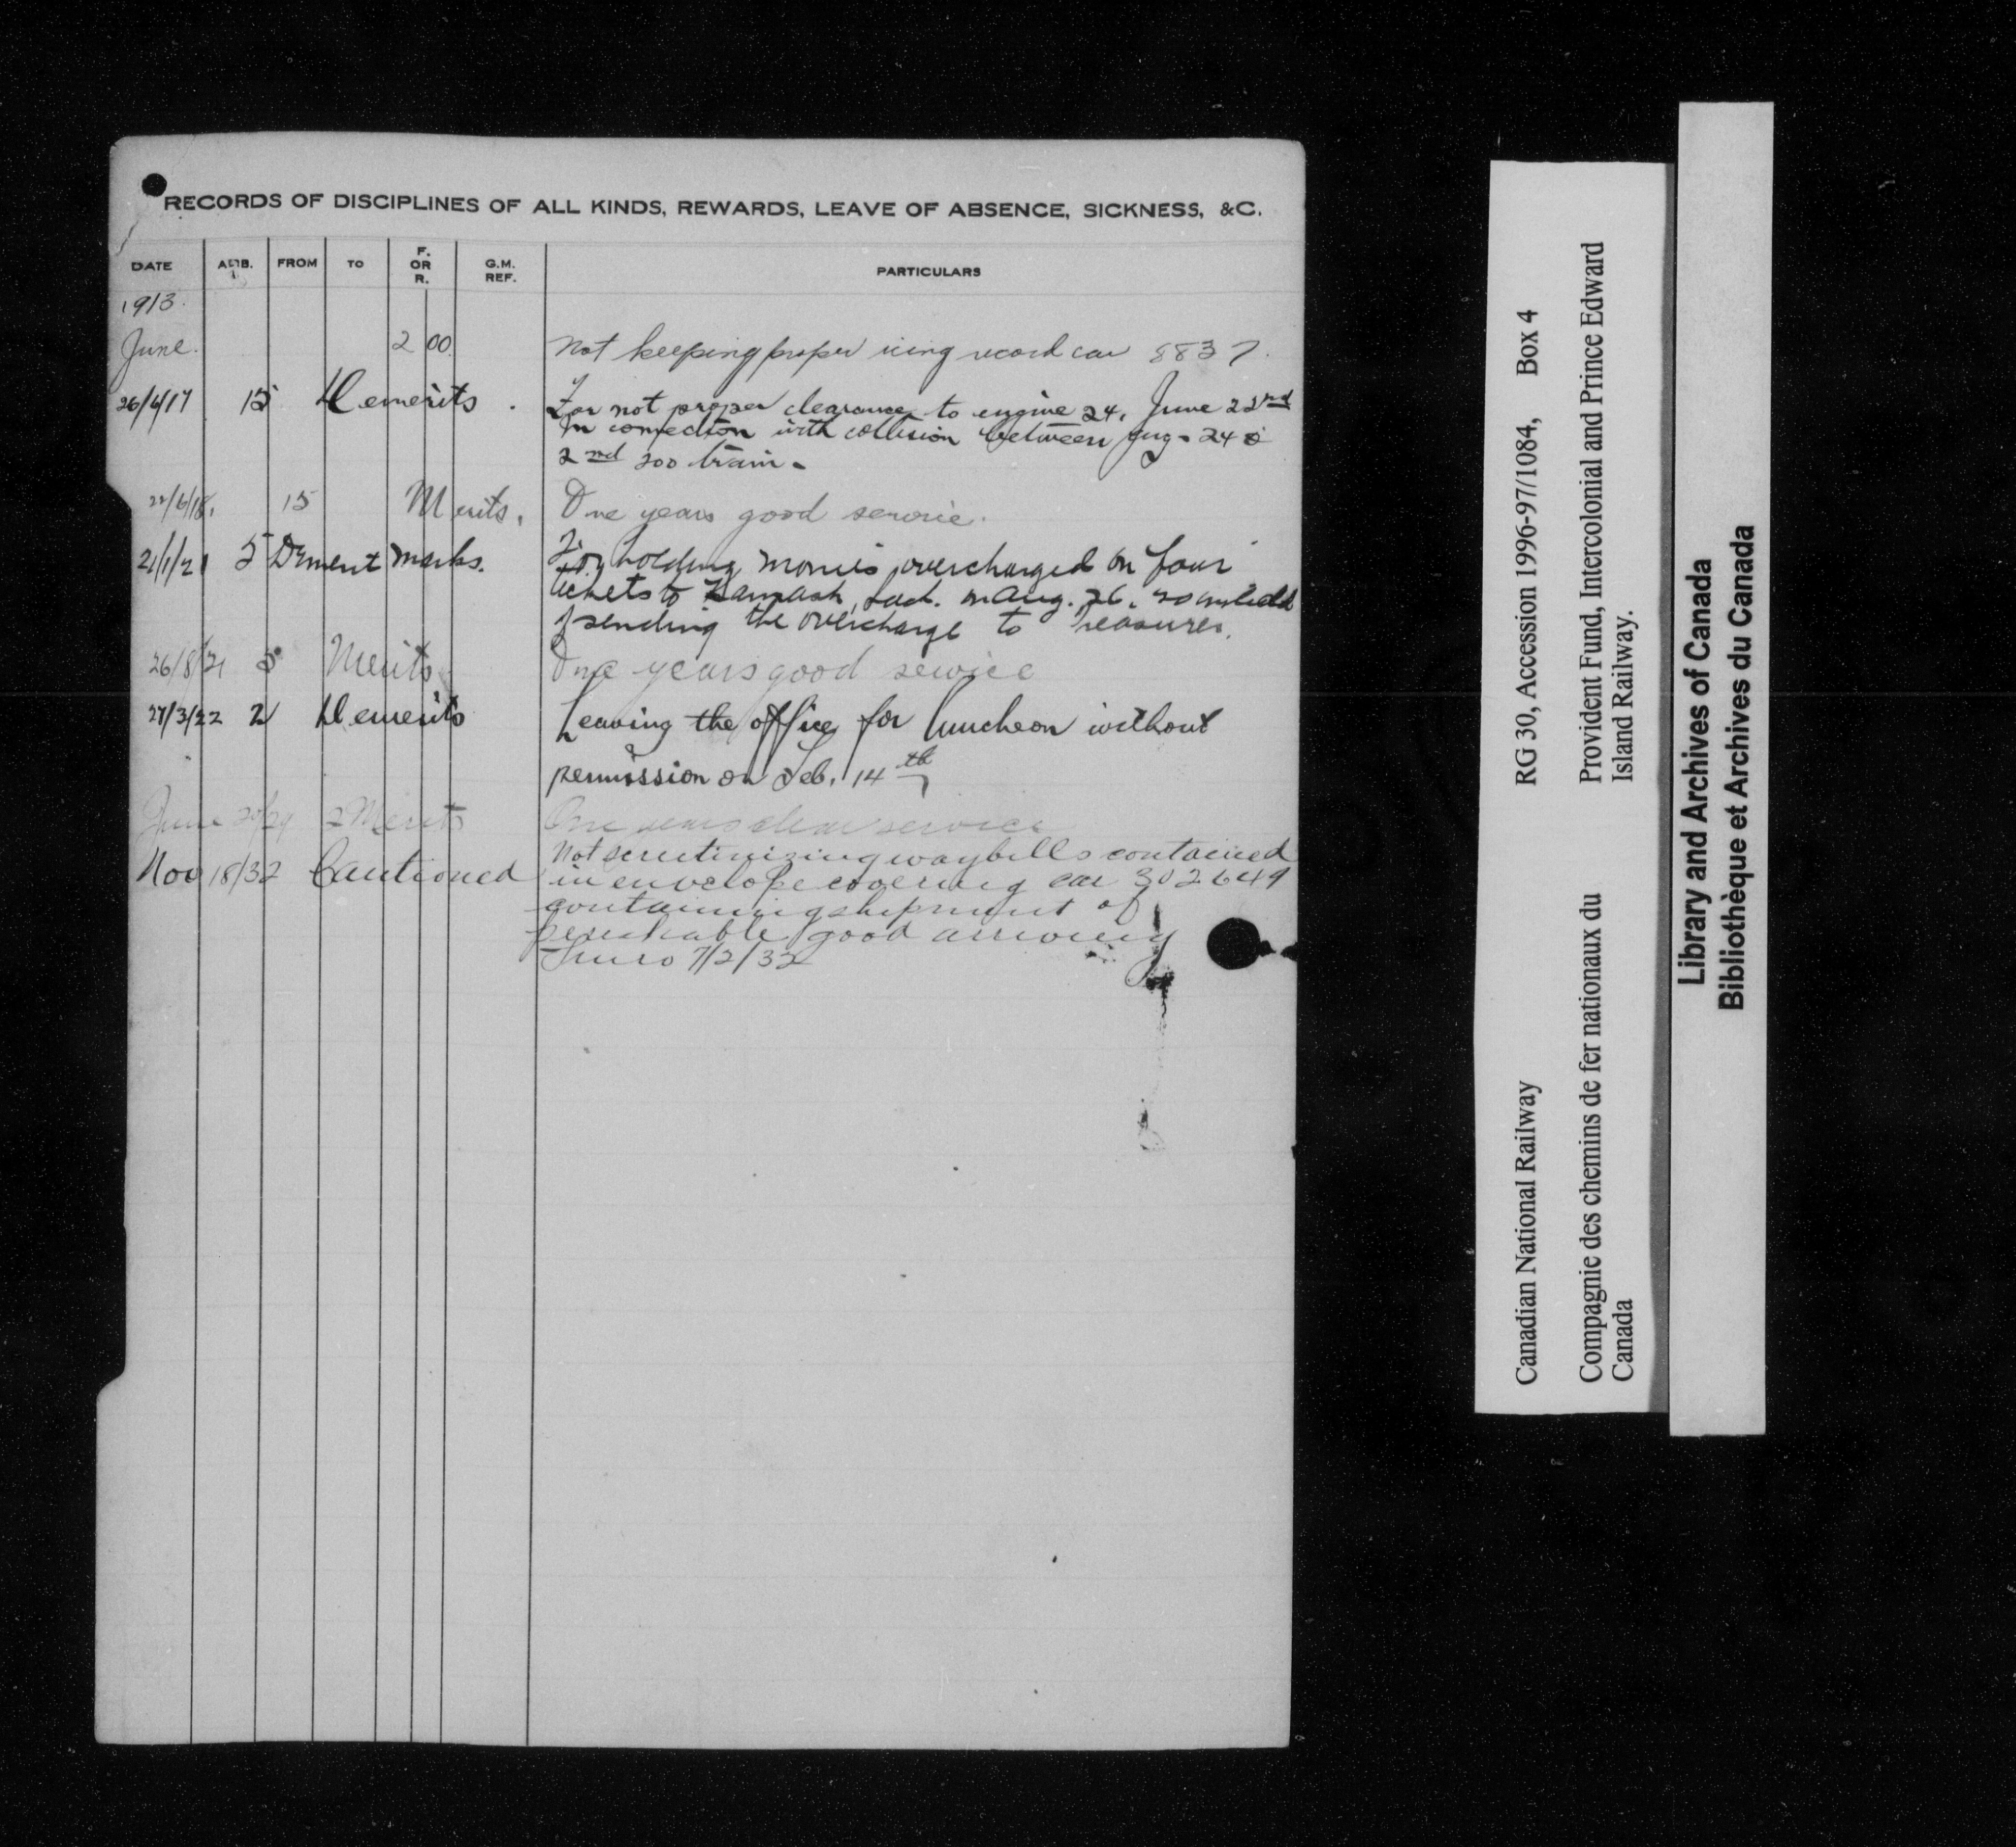 RECORDS OF DISCIPLINES OF ALL KINDS, REWARDS, LEAVE OF ABSENCE, SICKNESS, &C.
DATE FROM TO F. OR R. G.M. REF. PARTICULARS
1913.
June. 2 00 Not keeping proper icing record car 8837.
26/6/17 15 Demerits. For not proper clearance to engine 24, June 22nd
In connection with collision between Eng. 24 &
2nd 200 train.
22/6/18. 15 Merits. One years good service.
21/1/21 5 Demerit marks. For holding monies overcharged on four
tickets to Sask. Aug. 26. 20 instead
of sending the overcharge to Treasurer.
26/8/21 5 Merits One years good service
27/3/22 2 Demerits Leaving the office for luncheon without
permission on Feb. 14th
June 20/24 2 Merits One years clear service
Nov 18/32 Cautioned Not scrutinizing waybills contained
in envelope covering car 302649
containing shipment of
perishable good arriving
Truro 7/2/32
Canadian National Railway RG 30, Accession 1996-97/1084, Box 4
Compagnie des chemins de fer nationaux du Canada
Provident Fund, Intercolonial and Prince Edward Island Railway.
Library and Archives of Canada
Bibliothèque et Archives du Canada